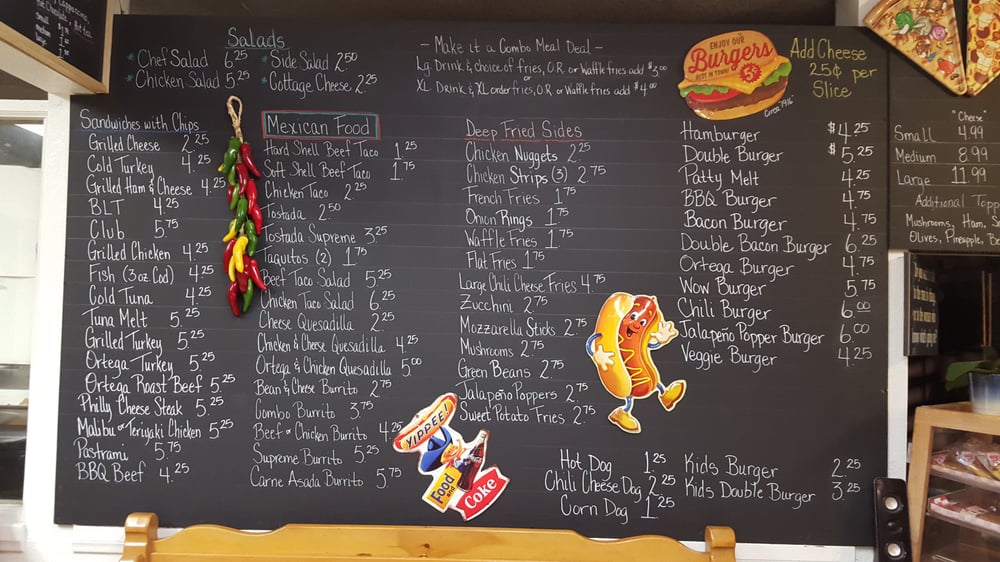 Salads
*Chef Salad 6.25 *Side Salad 2.50
*Chicken Salad 5.25 *Cottage Cheese 2.25
- Make it a Combo Meal Deal -
Lg. Drink & choice of fries, O.R. or Waffle fries add $3.00
or
XL Drink & XL order fries, O.R. or Waffle fries add $4.00
ENJOY OUR
Burgers
BEST IN TOWN
Circa 1916
Add Cheese
25¢ per
Slice
Sandwiches with Chips
Grilled Cheese 2.25
Cold Turkey 4.25
Grilled Ham & Cheese 4.25
BLT 4.25
Club 5.75
Grilled Chicken 4.25
Fish (3oz Cod) 4.25
Cold Tuna 4.25
Tuna Melt 5.25
Grilled Turkey 5.25
Ortega Turkey 5.25
Ortega Roast Beef 5.25
Philly Cheese Steak 5.25
Malibu or Teriyaki Chicken 5.25
Pastrami 5.75
BBQ Beef 4.25
Mexican Food
Hard Shell Beef Taco 1.25
Soft Shell Beef Taco 1.75
Chicken Taco 2.25
Tostada 2.50
Tostada Supreme 3.25
Taquitos (2) 1.75
Beef Taco Salad 5.25
Chicken Taco Salad 6.25
Cheese Quesadilla 2.25
Chicken & Cheese Quesadilla 4.25
Ortega & Chicken Quesadilla 5.00
Bean & Cheese Burrito 2.75
Combo Burrito 3.75
Beef or Chicken Burrito 4.25
Supreme Burrito 5.25
Carne Asada Burrito 5.75
Deep Fried Sides
Chicken Nuggets 2.25
Chicken Strips (3) 2.75
French Fries 1.75
Onion Rings 1.75
Waffle Fries 1.75
Flat Fries 1.75
Large Chili Cheese Fries 4.75
Zucchini 2.75
Mozzarella Sticks 2.75
Mushrooms 2.75
Green Beans 2.75
Jalapeño Poppers 2.75
Sweet Potato Fries 2.75
YIPPEE!
Food
and
Coke
Hamburger $4.25
Double Burger $5.25
Patty Melt 4.25
BBQ Burger 4.75
Bacon Burger 4.75
Double Bacon Burger 6.25
Ortega Burger 4.75
Wow Burger 5.75
Chili Burger 6.00
Jalapeño Popper Burger 6.00
Veggie Burger 4.25
Hot Dog 1.25
Chili Cheese Dog 2.25
Corn Dog 1.25
Kids Burger 2.25
Kids Double Burger 3.25
"Cheese"
Small 4.99
Medium 8.99
Large 11.99
Additional Topp
Mushrooms, Ham, S
Olives, Pineapple, B